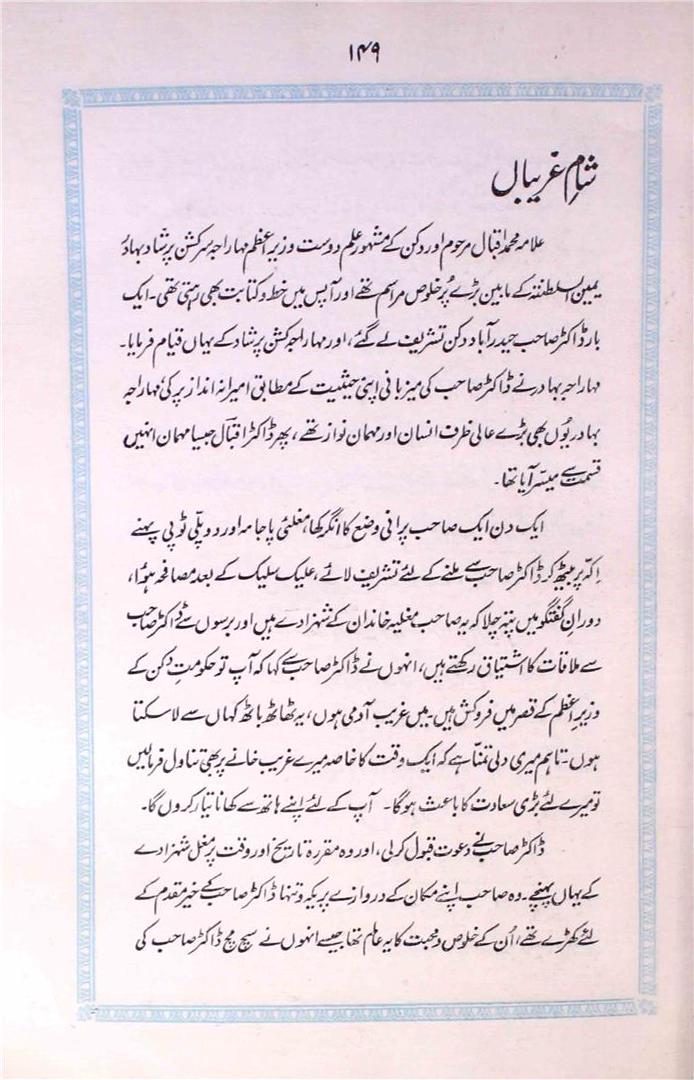 ۱۴۹
شامِ غریباں
علامہ محمد اقبال مرحوم اور دکن کے مشہور علم دوست وزیرِ اعظم مہاراجہ سر کشن پرشاد بہادر
یمین السلطنۃ کے مابین بڑے پُرخلوص مراسم تھے اور آپس میں خط و کتابت بھی رہتی تھی۔ ایک
بار ڈاکٹر صاحب حیدرآباد دکن تشریف لے گئے، اور مہاراجہ کشن پرشاد کے یہاں قیام فرمایا۔
مہاراجہ بہادر نے ڈاکٹر صاحب کی میزبانی اپنی حیثیت کے مطابق امیرانہ انداز پر کی مہاراجہ
بہادر یُوں بھی بڑے عالی ظرف انسان اور مہمان نواز تھے، پھر ڈاکٹر اقبالؔ جیسا مہمان انہیں
قسمت سے میسّر آیا تھا۔
ایک دن ایک صاحب پرانی وضع کا انگرکھا، مغلئی پاجامہ اور دوپلّی ٹوپی پہنے
اِکّہ پر بیٹھ کر ڈاکٹر صاحب سے ملنے کے لئے تشریف لائے، علیک سلیک کے بعد مصافحہ ہُوا،
دورانِ گفتگو میں پتہ چلا کہ یہ صاحب مغلیہ خاندان کے شہزادے ہیں اور برسوں سے ڈاکٹر صاحب
سے ملاقات کا اشتیاق رکھتے ہیں، انہوں نے ڈاکٹر صاحب سے کہا کہ آپ تو حکومتِ دکن کے
وزیرِ اعظم کے قصر میں فروکش ہیں۔ میں غریب آدمی ہوں، یہ ٹھاٹھ باٹھ کہاں سے لا سکتا
ہوں۔ تاہم میری دلی تمنّا ہے کہ ایک وقت کا خاصہ میرے غریب خانے پر بھی تناول فرمالیں
تو میرے لئے بڑی سعادت کا باعث ہوگا۔ آپ کے لئے اپنے ہاتھ سے کھانا تیار کروں گا۔
ڈاکٹر صاحب نے دعوت قبول کرلی، اور وہ مقررہ تاریخ اور وقت پر مغل شہزادے
کے یہاں پہنچے۔ وہ صاحب اپنے مکان کے دروازے پر یکہ و تنہا ڈاکٹر صاحب کے خیر مقدم کے
لئے کھڑے تھے، اُن کے خلوص و محبت کا یہ عالم تھا، جیسے انہوں نے سچ مچ ڈاکٹر صاحب کی